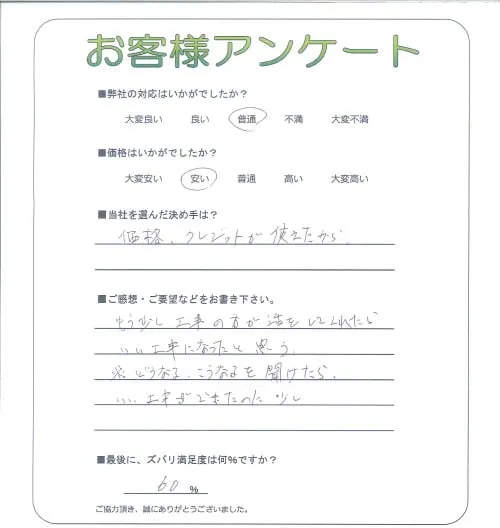 お客様アンケート
■弊社の対応はいかがでしたか？
大変良い 良い 普通 不満 大変不満
■価格はいかがでしたか？
大変安い 安い 普通 高い 大変高い
■当社を選んだ決め手は？
価格、クレジットが使えたから、
■ご感想・ご要望などをお書き下さい。
もう少し工事の方が話をしてくれたら
いい工事になったと思う。
どうなる、こうなるを聞けたら、
いい工事ができたのに少し
■最後に、ズバリ満足度は何%ですか？
60 %
ご協力頂き、誠にありがとうございました。